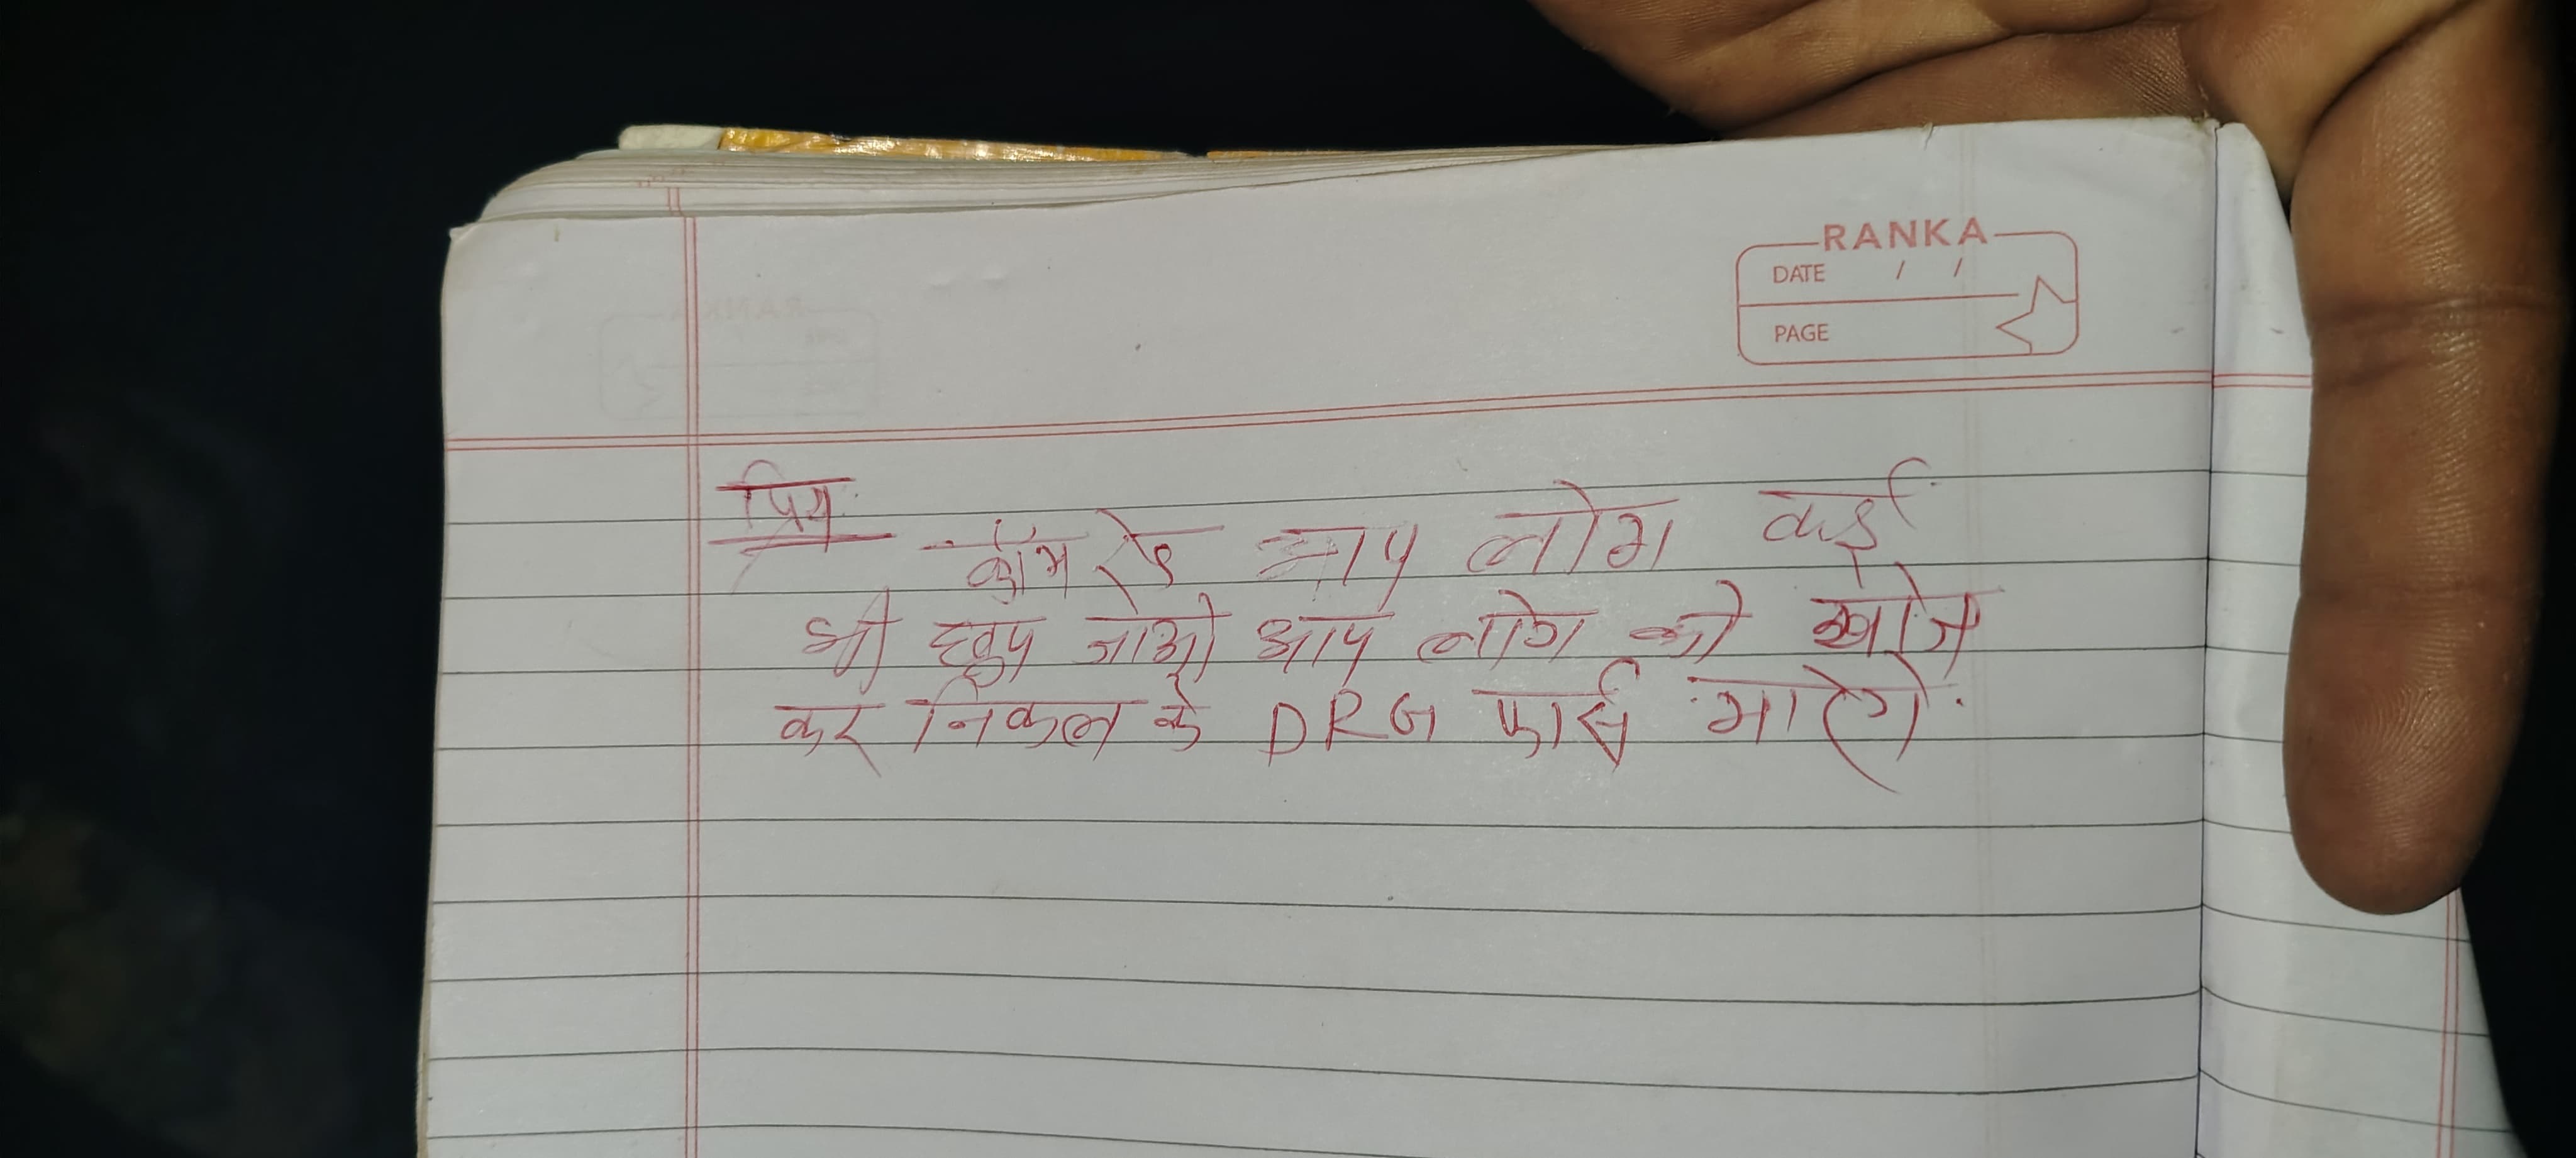 RANKA
DATE / /
PAGE
प्रिय
कॉमरेड आप लोग कई
भी छुप जाओ आप लोग को खोज
कर निकल के DRG फार्स मारेगे